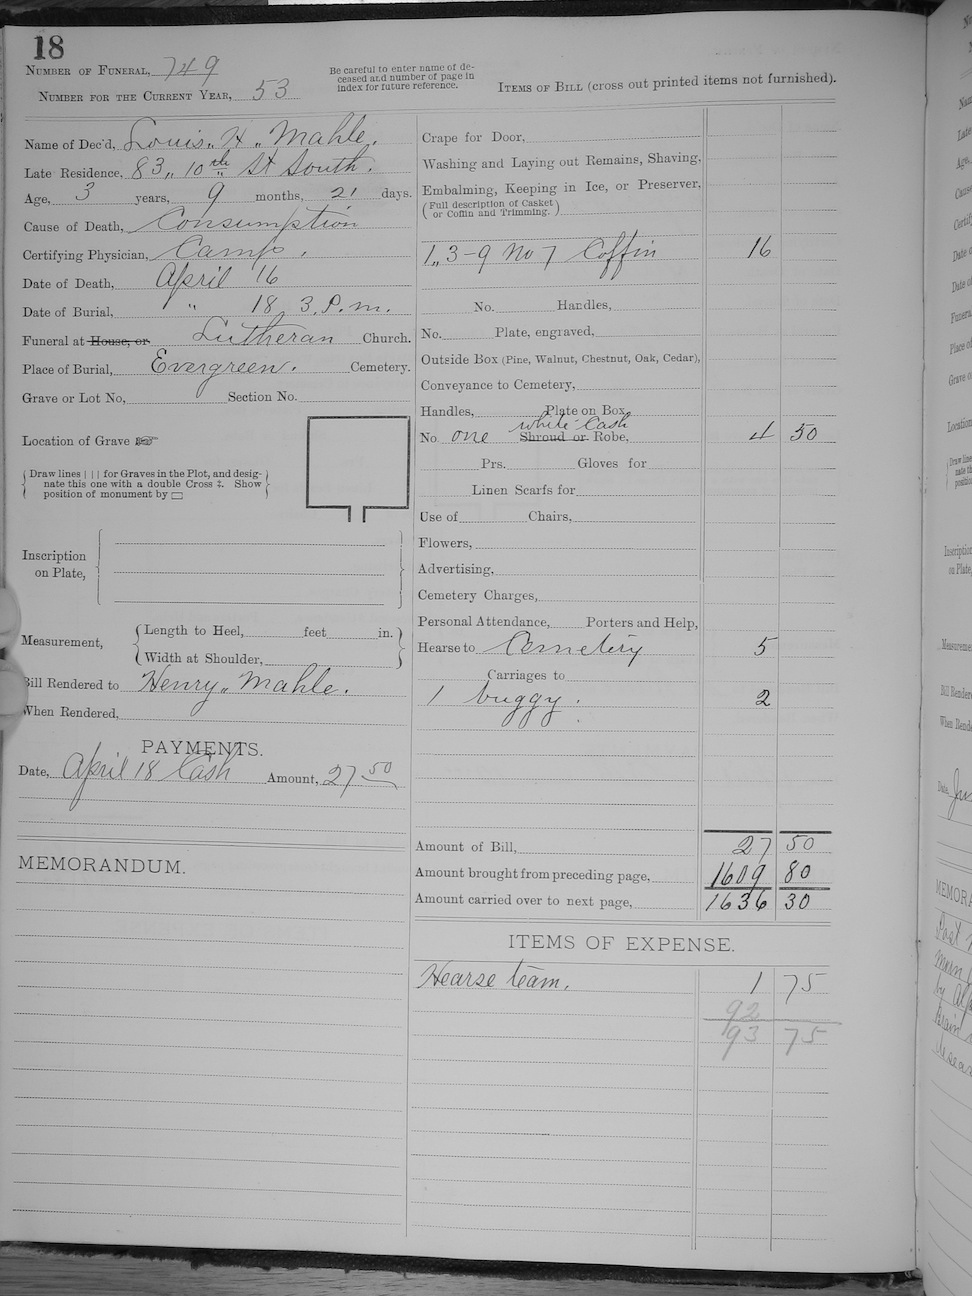 18
NUMBER OF FUNERAL, 749
NUMBER FOR THE CURRENT YEAR, 53
Be careful to enter name of de-
ceased and number of page in
index for future reference.
ITEMS OF BILL (cross out printed items not furnished).
Name of Dec'd, Louis. H. Mahle.
Late Residence, 83, 10th St South.
Age, 3 years, 9 months, 21 days.
Cause of Death, Consumption
Certifying Physician, Camp.
Date of Death, April 16
Date of Burial, " 18, 3. P. m.
Funeral at House, or Lutheran Church.
Place of Burial, Evergreen. Cemetery.
Grave or Lot No, Section No.
Location of Grave
Draw lines | | | for Graves in the Plot, and desig-
nate this one with a double Cross ‡. Show
position of monument by
Inscription
on Plate,
Measurement,
Length to Heel, feet in.
Width at Shoulder,
Bill Rendered to Henry. Mahle.
When Rendered,
PAYMENTS.
Date, April 18 Cash Amount, 27 50
MEMORANDUM.
Crape for Door,
Washing and Laying out Remains, Shaving,
Embalming, Keeping in Ice, or Preserver,
(Full description of Casket
or Coffin and Trimming.)
1,, 3-9 No 7 Coffin 16
No. Handles,
No. Plate, engraved,
Outside Box (Pine, Walnut, Chestnut, Oak, Cedar),
Conveyance to Cemetery,
Handles, Plate on Box,
white Cash
No one Shroud or Robe, 4 50
Prs. Gloves for
Linen Scarfs for
Use of Chairs,
Flowers,
Advertising,
Cemetery Charges,
Personal Attendance, Porters and Help,
Hearse to Cemetery 5
Carriages to
1 buggy. 2
Amount of Bill, 27 50
Amount brought from preceding page, 1609 80
Amount carried over to next page, 1636 30
ITEMS OF EXPENSE.
Hearse team, 1 75
92
93 75